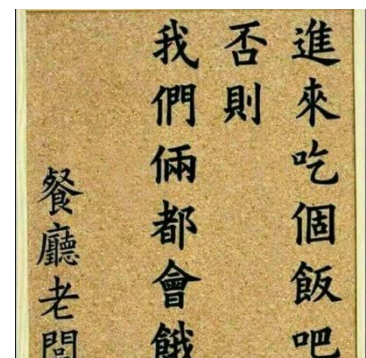 進來吃個飯吧
否則
我們倆都會餓
餐廳老闆